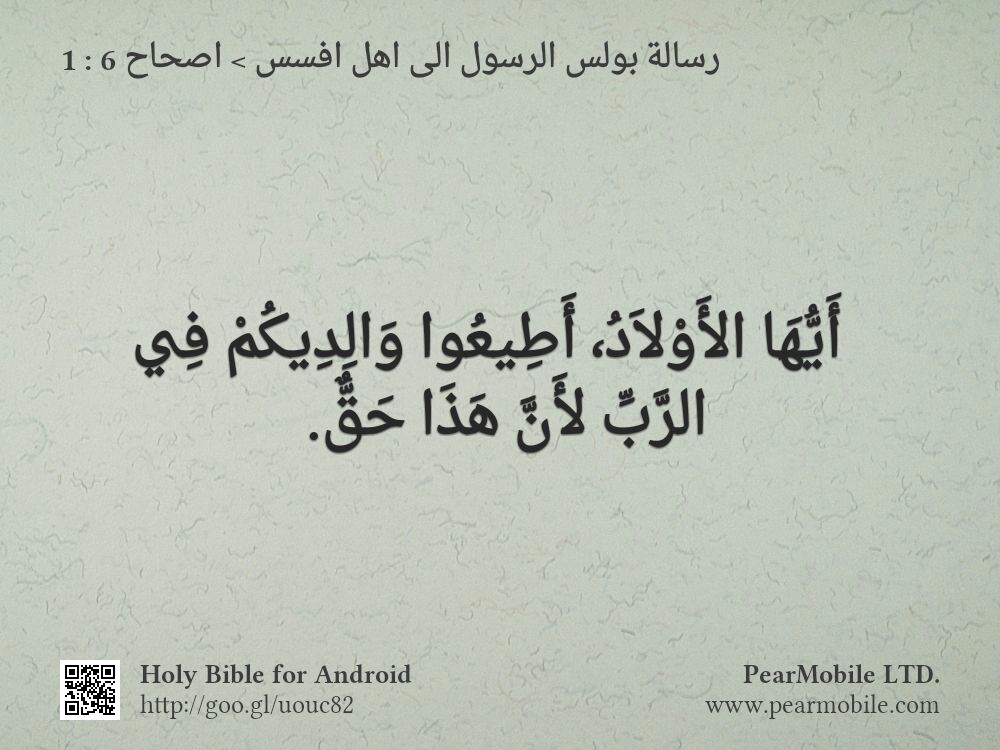 رسالة بولس الرسول الى اهل افسس > اصحاح 6 : 1
أَيُّهَا الأَوْلاَدُ، أَطِيعُوا وَالِدِيكُمْ فِي
الرَّبِّ لأَنَّ هَذَا حَقٌّ.
Holy Bible for Android
http://goo.gl/uouc82
PearMobile LTD.
www.pearmobile.com